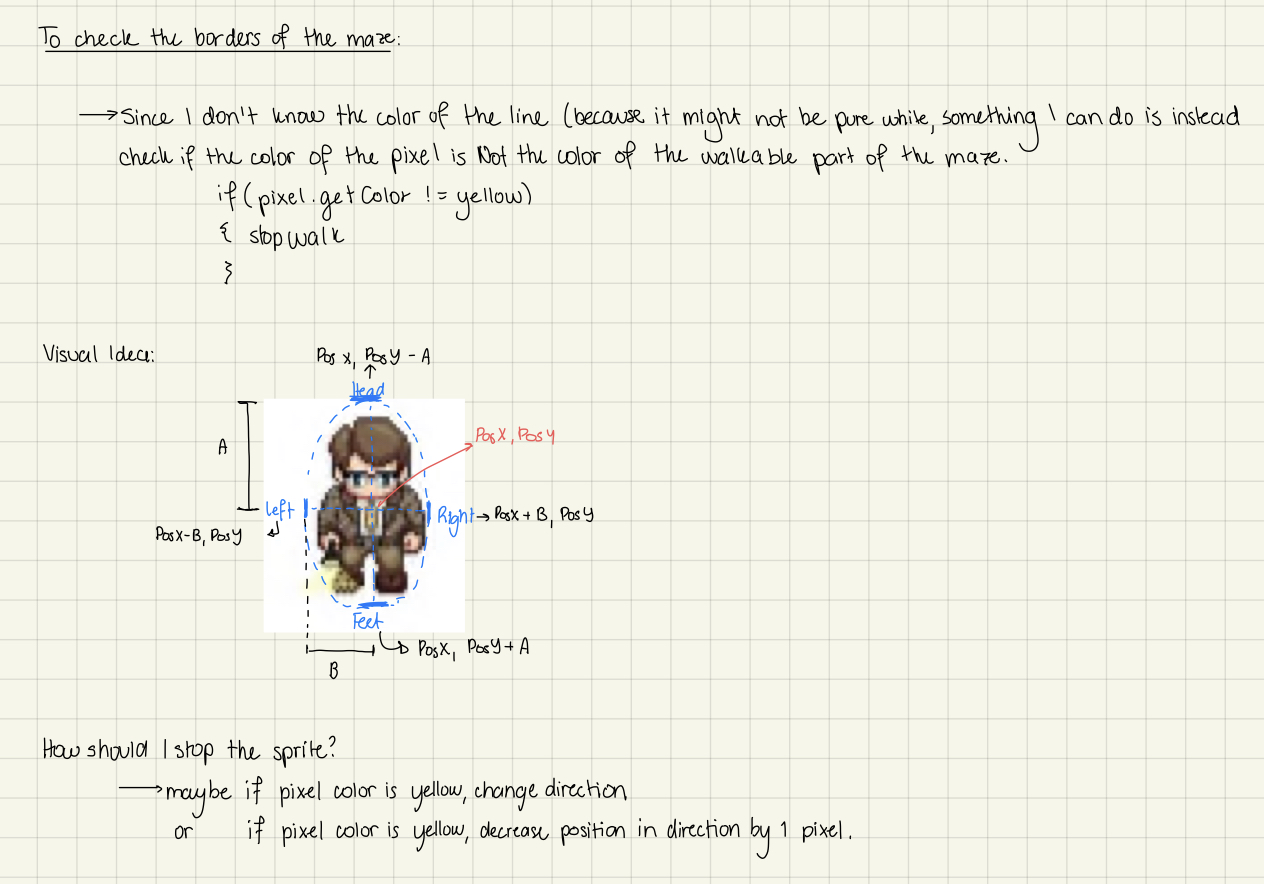 To check the borders of the maze:
→ Since I don't know the color of the line (because it might not be pure white, something I can do is instead
check if the color of the pixel is Not the color of the walkable part of the maze.
if (pixel.getColor != yellow)
{ stopwalk
}
Visual Idea:
Pos X, Pos Y - A
Head
A
Pos X, Pos Y
Left
Right → Pos X + B, Pos Y
Pos X-B, Pos Y
Feet
Pos X, Pos Y + A
B
How should I stop the sprite?
→ maybe if pixel color is yellow, change direction
or if pixel color is yellow, decrease position in direction by 1 pixel.